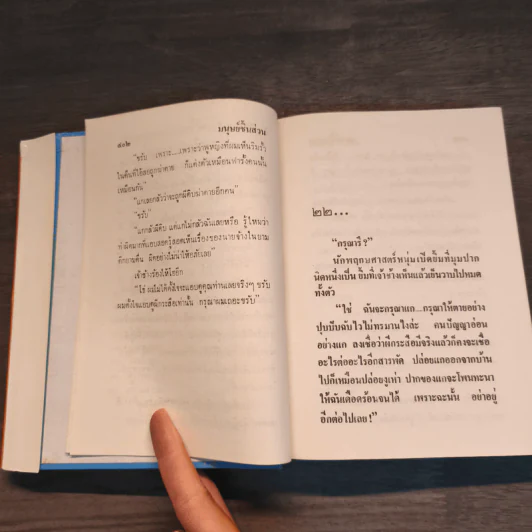 ๔๐๒
มนุษย์ชิ้นส่วน
"ขรับ เพราะ....เพราะว่าผู้หญิงที่ผมเห็นริมรั้ว
ในคืนที่ไอ้สอถูกฆ่าตาย ก็แต่งตัวเหมือนฟารังคนนั้น
เหมือนกัน"
"แกเลยกลัวว่าจะถูกผีดิบฆ่าตายอีกคน"
"ขรับ"
"แกกลัวผีดิบ แต่แกไม่กลัวฉันเลยหรือ รู้ไหมว่า
เจ้าช่างร้องไห้โฮอีก
"โธ่ ผมไม่ได้ตั้งใจจะแอบดูคุณท่านเลยจริงๆ ขรับ
ผมตั้งใจแอบดูผีกระสือเท่านั้น กรุณาผมเถอะขรับ"
๒๒...
"กรุณารึ ?"
นักพฤกษศาสตร์หนุ่มเบิดยิ้มที่มุมปาก
นิดหนึ่งเป็น ยิ้มที่เจ้าช้างเห็นแล้วเย็นวาบไปหมด
ทั้งตัว
"ใช่ ฉันจะกรุณาแก...กรุณาให้ตายอย่าง
ปุบปับฉับไวไม่ทรมานไงล่ะ คนปัญญาอ่อน
อย่างแก ลงเชื่อว่าผีกระสือมีจริงแล้วก็คงจะเชื่อ
อะไรต่ออะไรอีกสารพัด ปล่อยแกออกจากบ้าน
ไปก็เหมือนปล่อยงูเห่า ปากของแกจะโพนทะนา
ให้ฉันเดือดร้อนจนได้ เพราะฉะนั้น อย่าอยู่
อีกต่อไปเลย!"